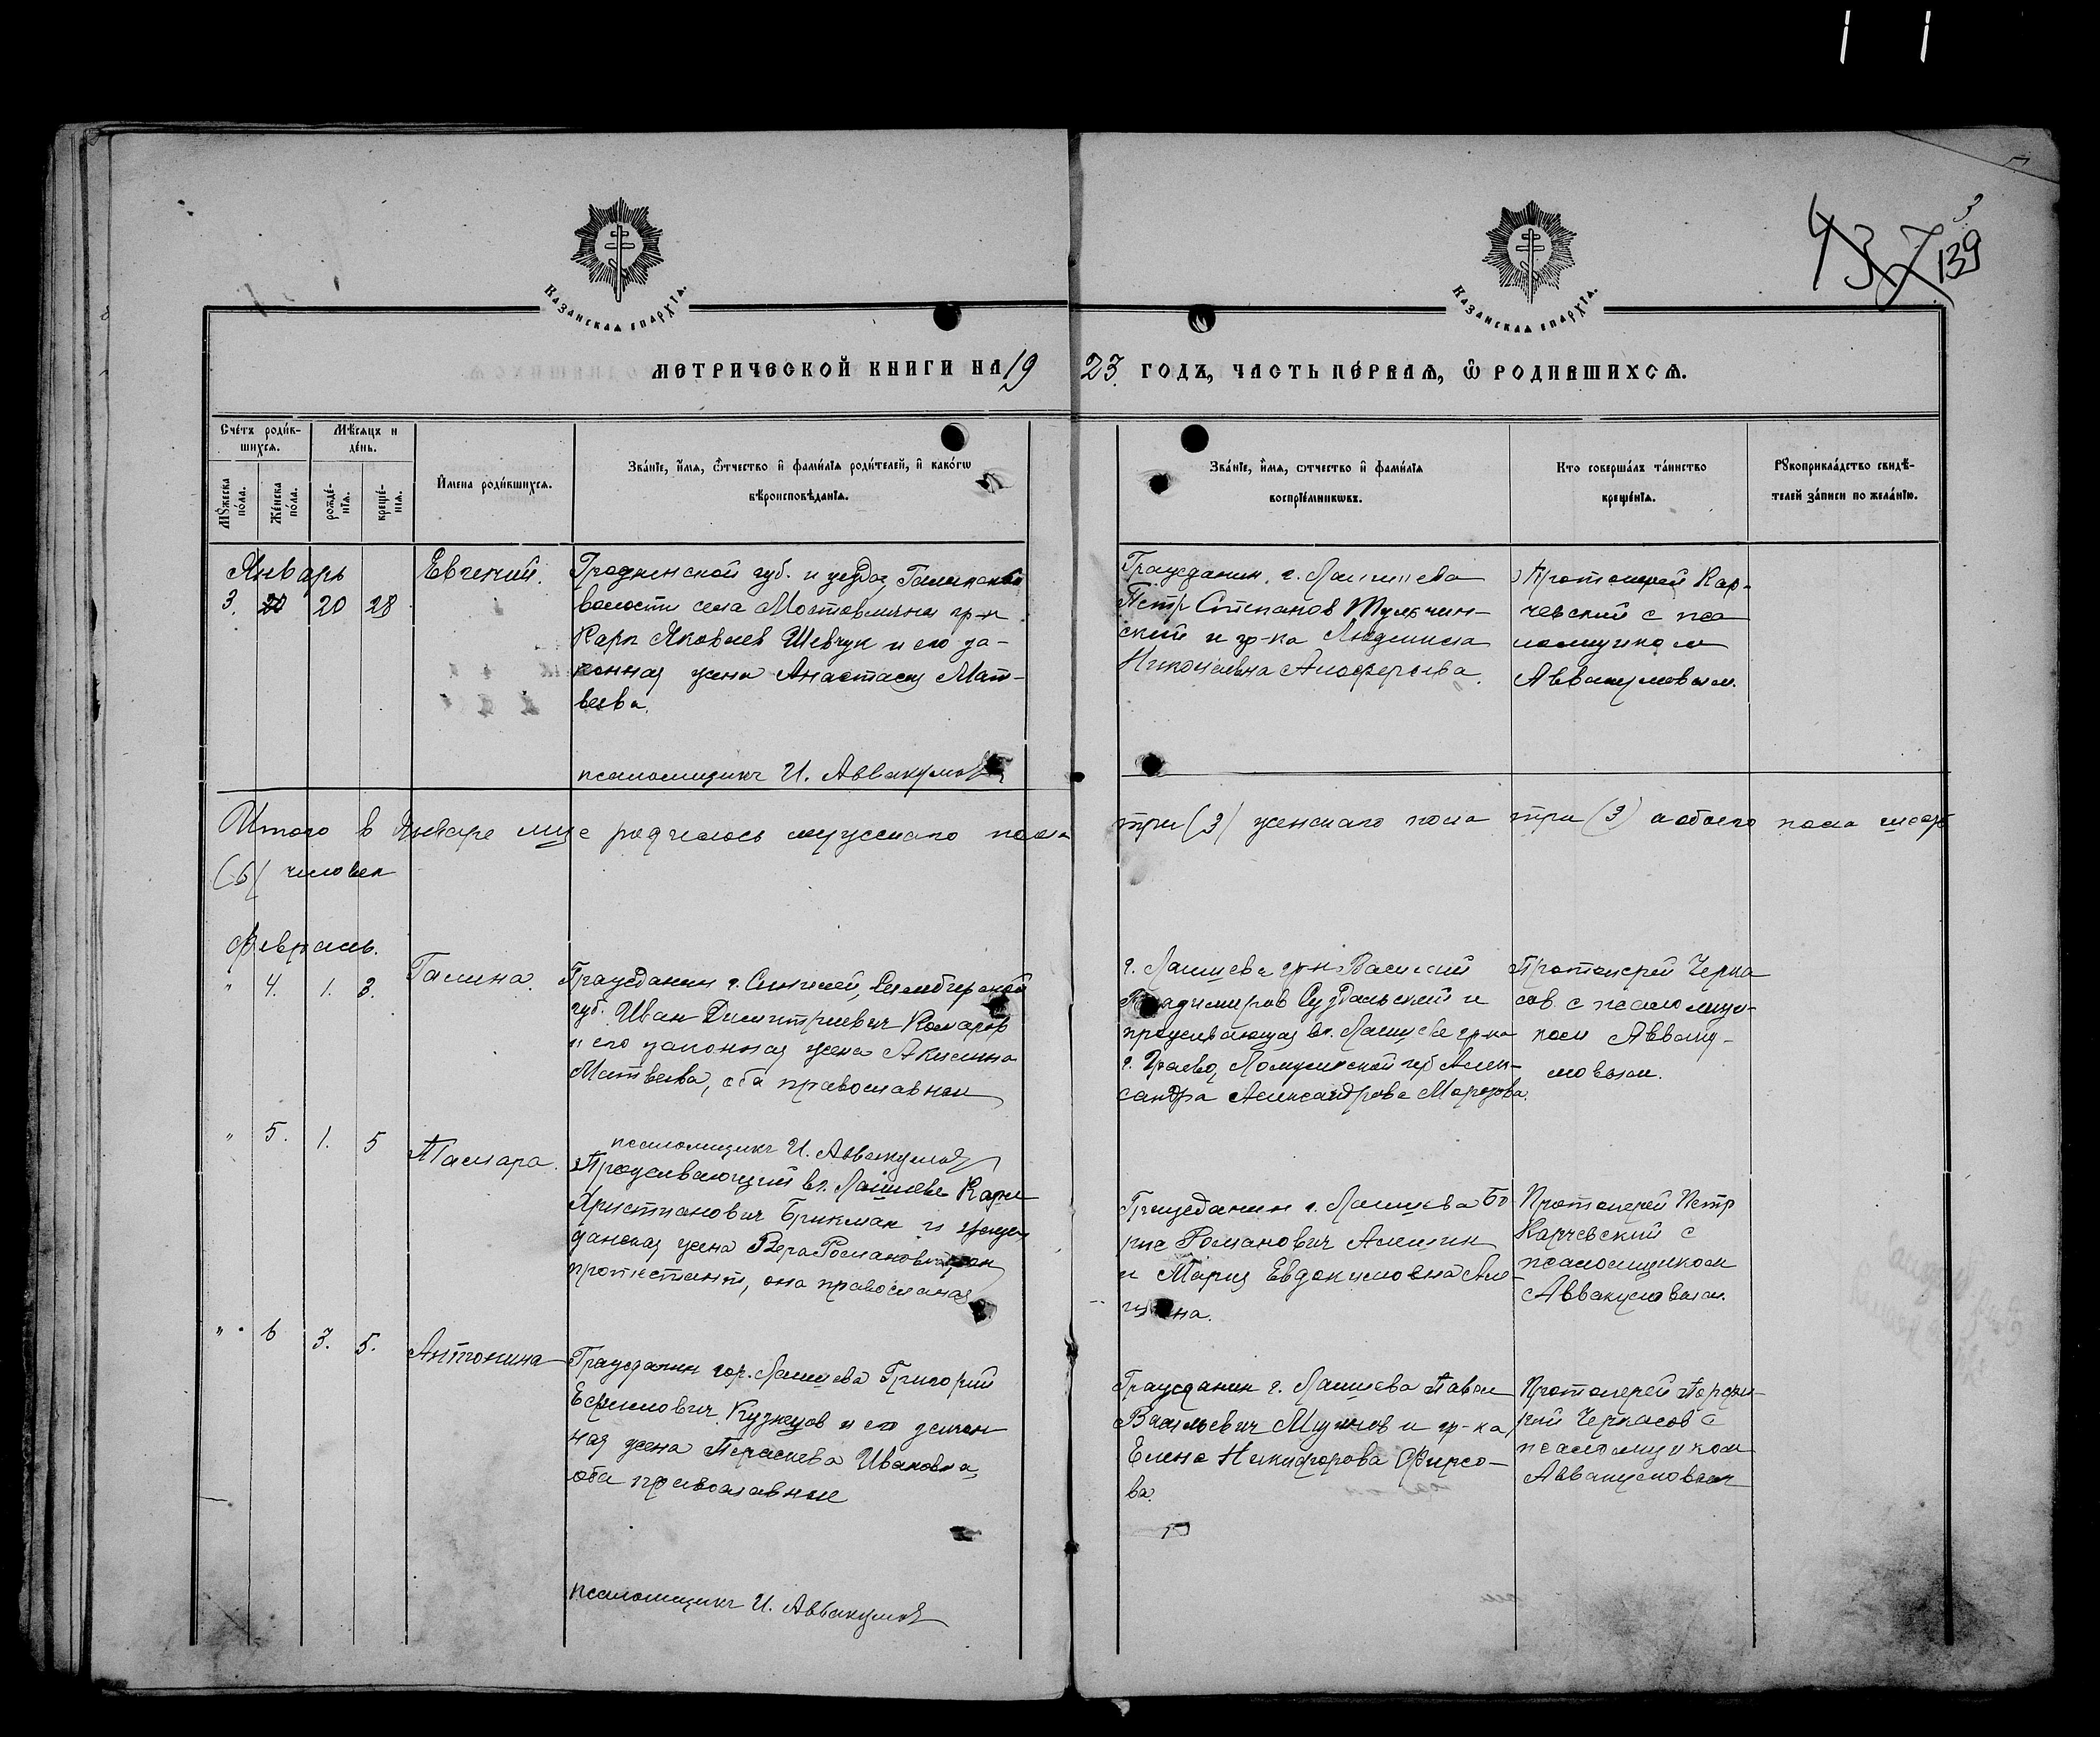 437 139
3
Казанская епархїа.
Казанская епархїа.
МЕТРИЧЕСКОЙ КНИГИ НА 1923 ГОДЪ, ЧАСТЬ ПЕ́РВАѦ, Ѡ҆ РОДИВШИХСѦ.
Сче́тъ роди́в-
шихсѧ.
Мѣ́сѧцъ и
де́нь.
Мꙋ́жеска
по́ла.
Же́нска
по́ла.
рожде́-
нїѧ.
креще́-
нїѧ.
И҆мена роди́вшихсѧ.
Зва́нїе, и҆́мѧ, ѻ҆́тчество и҆ фами́лїѧ роди́телей, и҆ како́гѡ
вѣроисповѣ́данїѧ.
Зва́нїе, и҆́мѧ, ѻтчество и҆ фами́лїѧ
воспрїе́мникѡвъ.
Кто соверша́лъ та́инство
креще́нїѧ.
Рꙋкоприкла́дство свидѣ́-
телей за́писи по жела́нїю.
Январь
3. 20 28
Евгений.
Гродненской губ. и уезда,
волости села гр-н
Карп Яковлев Шевчук и его за-
конная жена Анастасия Мат-
веева.
псаломщикъ И. Аввакумов
Гражданин г. Лаишева
Петр Степанов Тульчин-
ский и гр-ка Людмила
Николаевна
Протоиерей Кар-
чевский с пса
ломщиком
Аввакумовым.
Итого в Январе м-це родилось мужскаго пола три (3) женскаго пола три (3) а обоего пола шесть
(6) человек
Февраль.
" 4. 1. 3.
Галина.
Гражданин г. Симбирской
губ. Иван Димитриевич Комаров
и его законная жена Акилина
Матвеева, оба православныи
псаломщикъ И. Аввакумов
г. Лаишева гр-н Василий
Владимиров Суздальский и
проживающая в г. Лаишеве гр-ка
г. Граево, Ломжинской губ Алек-
сандра Александрова Морозова.
Протоиерей Черка
сов. с псаломщи-
ком Авваку-
мовым.
" 5. 1. 5
Тамара.
Проживающий в г. Лаишеве Карл
Христианович Брикман и граж
данская жена Вера Романовна, он
протестант, она православная
Гражданин г. Лаишева Бо
рис Романович Алешин
и Мария Евдокимовна Але-
шина.
Протоиерей Петр
Карчевский с
псаломщиком
Аввакумовым.
" 6 3. 5.
Антонина
Гражданин гор. Лаишева Григорий
Ефимович Кузнецов и его закон
ная жена Параскева Ивановна,
оба православные
псаломщикъ И. Аввакумов
Гражданин г. Лаишева Павел
Васильевич и гр-ка
Елена Никифорова Фирсо-
ва.
Протоиерей Порфи-
рий Черкасов с
псаломщиком
Аввакумовым